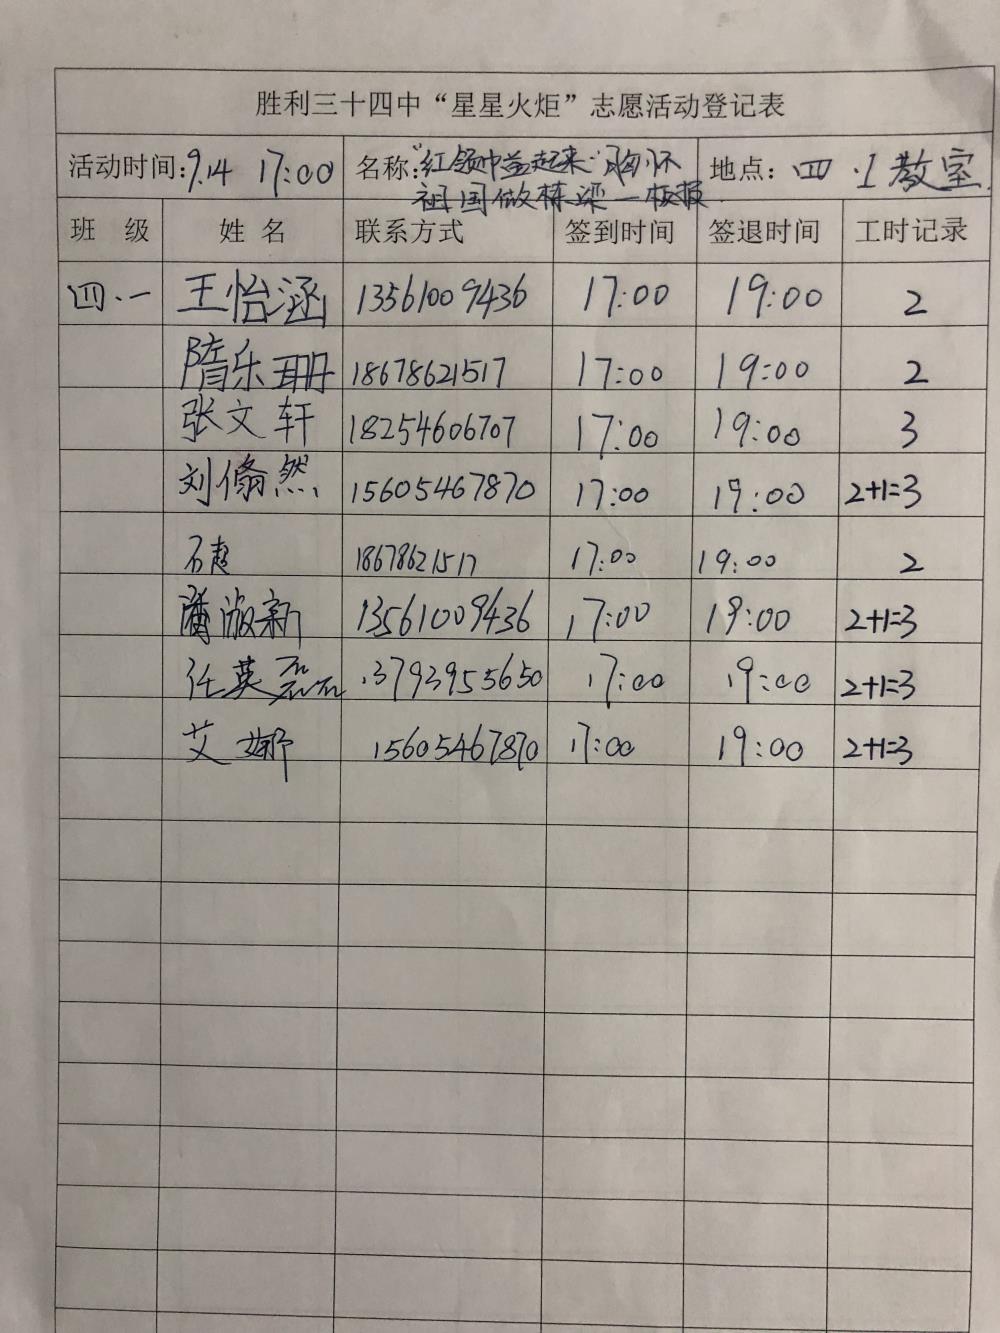 胜利三十四中“星星火炬”志愿活动登记表
活动时间:9.14 17:00 名称:“红领巾益起来”胸怀 地点: 四.1教室
祖国做栋梁一板报
班 级 姓 名 联系方式 签到时间 签退时间 工时记录
四.一 王怡涵 13561009436 17:00 19:00 2
隋乐珊 18678621517 17:00 19:00 2
张文轩 18254606707 17:00 19:00 3
刘翛然 15605467870 17:00 19:00 2+1=3
石超 18678621517 17:00 19:00 2
淑新 13561009436 17:00 19:00 2+1=3
任英磊 13793955650 17:00 19:00 2+1=3
艾娜 15605467870 17:00 19:00 2+1=3